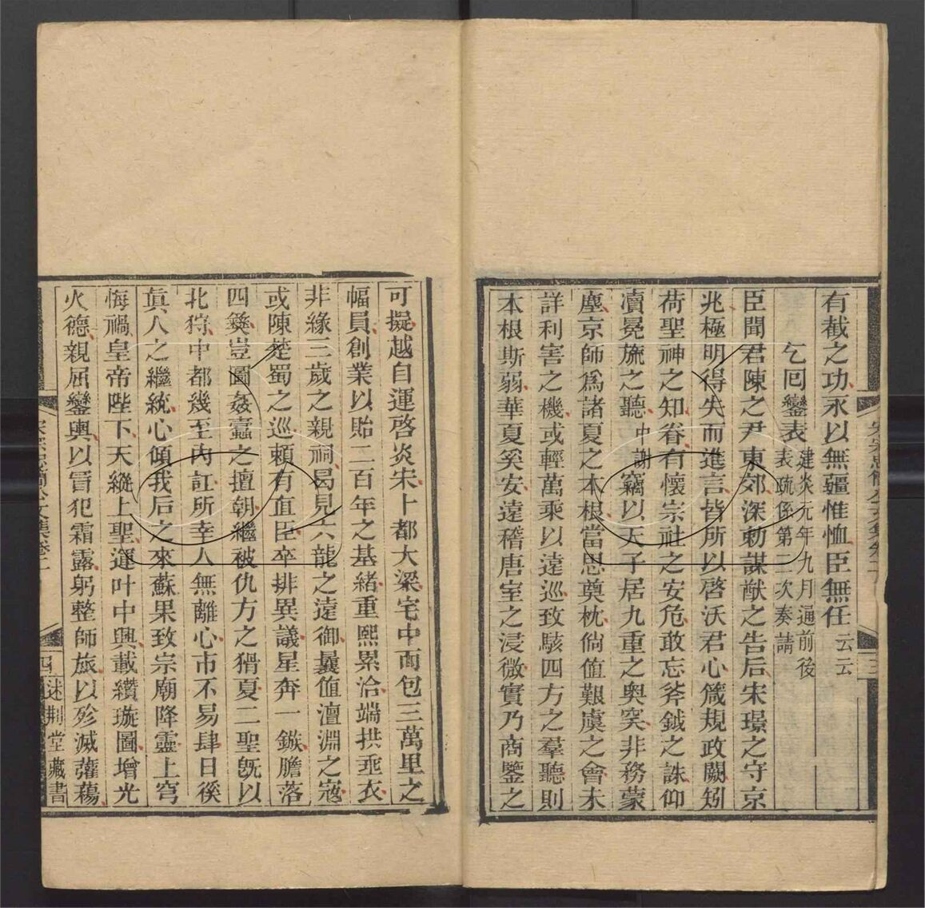 有截之功永以無疆惟恤臣無任云云
乞回鑾表建炎元年九月通前後表疏係第二次奏請
臣聞君陳之尹東郊深勅謀猷之告后宋璟之守京
兆極明得失而進言皆所以啓沃君心箴規政闕矧
荷聖神之知眷有懷宗社之安危敢忘斧鉞之誅仰
瀆冕旒之聽中謝竊以天子居九重之奥突非務蒙
塵京師爲諸夏之本根當思奠枕倘值艱虞之會未
詳利害之機或輕萬乘以遠巡致駭四方之羣聽則
本根斯弱華夏奚安遠稽唐室之浸微實乃商鑒之
三
可擬越自運啓炎宋卜都大梁宅中而包三萬里之
幅員創業以貽二百年之基緒重熙累洽端拱垂衣
非緣三歲之親祠曷見六龍之遠御曩值澶淵之寇
或陳楚蜀之巡頼有直臣卒排異議星奔一鏃膽落
四夷豈圖姦蠹之擅朝繼被仇方之猾夏二聖旣以
北狩中都幾至内訌所幸人無離心市不易肆日徯
眞人之繼統心傾我后之來蘇果致宗廟降靈上穹
悔禍皇帝陛下天縱上聖運叶中興載纘璇圖增光
火德親屈鑾輿以冒犯霜露躬整師旅以殄滅萑蒲
四
述荆堂藏書